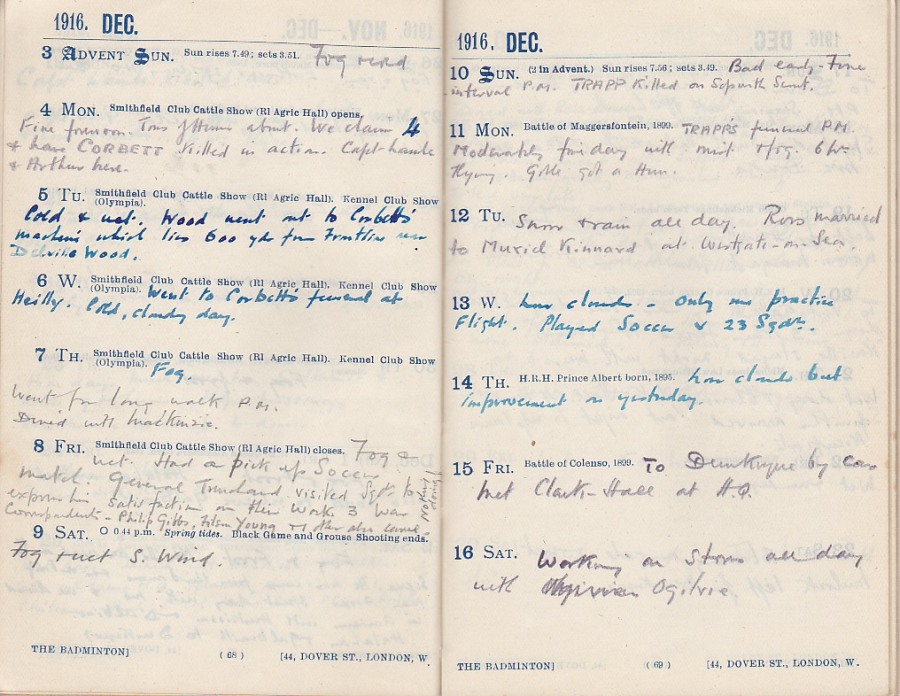 1916. DEC.
3 ADVENT SUN. Sun rises 7.49; sets 3.51. Fog
4 MON. Smithfield Club Cattle Show (Rl Agric Hall) opens.
Fine forenoon. Tons of Huns about. We claim 4
& have CORBETT killed in action. Capt
& Arthur here.
5 TU. Smithfield Club Cattle Show (Rl Agric Hall). Kennel Club
(Olympia).
Cold & wet. Wood went out to Corbett's
machine which lies 600 yds from Frontline near
Delville Wood.
6 W. Smithfield Club Cattle Show (Rl Agric Hall). Kennel Club
(Olympia). Went to Corbett's funeral at
Heilly. Cold, cloudy day.
7 TH. Smithfield Club Cattle Show (Rl Agric Hall). Kennel Club
(Olympia). Fog.
Went for long walk P.M.
Dined with Mackenzie.
8 FRI. Smithfield Club Cattle Show (Rl Agric Hall) closes. Fog &
wet. Had a pick up Soccer
match. General Trenchard visited Sqdn to
express his satisfaction on their work 3 War
Correspondents - Philip Gibbs, Filson Young & other also came
Nothing doing
9 SAT. O 0 44 p.m. Spring tides. Black Game and Grouse Shooting ends.
Fog & wet S. Wind.
THE BADMINTON] (68) [44, DOVER ST., LONDON, W.
1916, DEC.
10 SUN. (2 in Advent.) Sun rises 7.56; sets 3.49. Bad early - Fine
interval P.M. TRAPP killed on Sopwith Scout.
11 MON. Battle of Maggersfontein, 1899. TRAPP'S funeral P.M.
Moderately fine day with mist & fog. 6 hrs
flying. Goble got a Hun.
12 TU. Snow & rain all day. Ross married
to Muriel Kinnard at Westgate-on-Sea.
13 W. Low clouds - Only one practice
Flight. Played Soccer v 23 Sqdn.
14 TH. H.R.H. Prince Albert born, 1895. Low clouds but
improvement on yesterday.
15 FRI. Battle of Colenso, 1899. To Dunkirque by car
Met Clark-Hall at H.Q.
16 SAT. Working on Stores all day
with Ogilvie
THE BADMINTON] (69) [44, DOVER ST., LONDON, W.